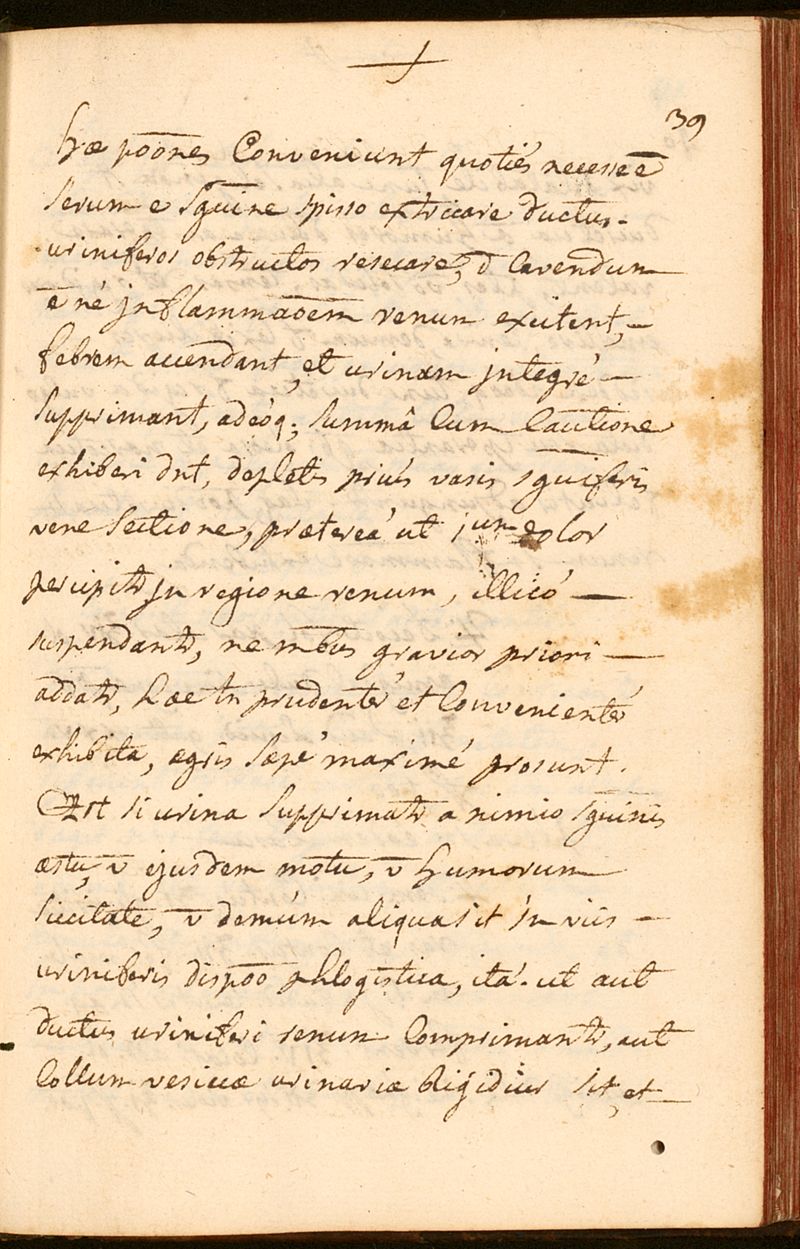 39
hæ põones Conveniunt quotiés necesse ē
serum e sḡuine spisso extricare ductus
uriniferos obstructos resecare, d Cavendum
ē né jnflammãoem renum excitent,
febrem accendant, et urinam jntegré
supprimant, adeóq; summâ Cum Cautione
exhiberi dnt, depletis priús vasis sḡuiferis
vene sectione, prætereá ut dolor
percipitr jn regione renum, illicó
suspendantr, ne mb̄us gravior priori
addatr, hæ tn prudentér et Convenientér
exhibita, ægris sæpé maximé prosunt.
Ast si urina supprimatr a nimio sḡuinis
æstu, v̄ ejusdem motu, v̄ humorum
siccitate, v̄ demúm aliqua sit in viis
uriniferis dispõo phlogistica, itá ut aut
ductus uriniferi renum Comprimantr, aut
Collum vesicæ urinariæ Rigidius sit, et